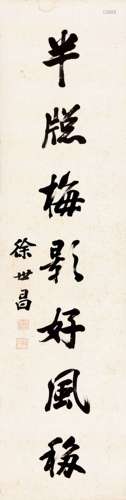 半牎梅影好風移
徐世昌